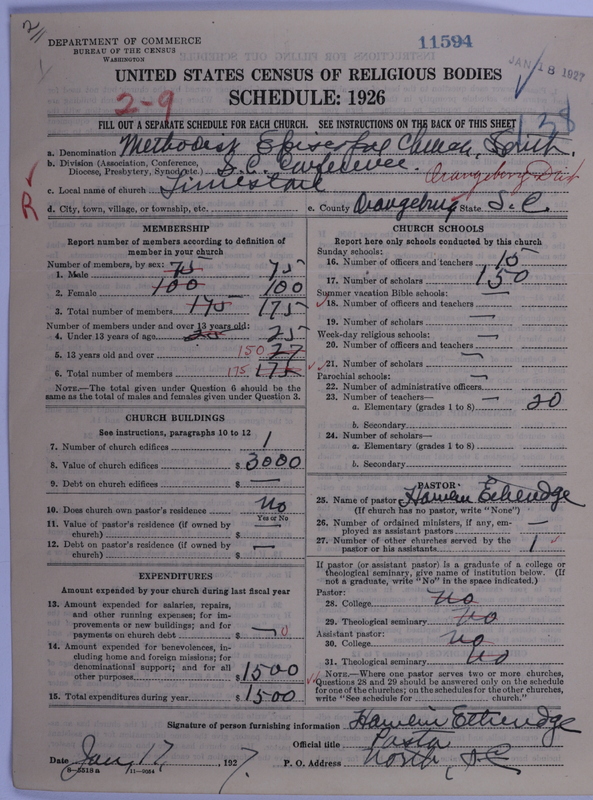 2
11
DEPARTMENT OF COMMERCE
BUREAU OF THE CENSUS
WASHINGTON
11594
JAN 18 1927
UNITED STATES CENSUS OF RELIGIOUS BODIES
SCHEDULE: 1926
2-9
138
FILL OUT A SEPARATE SCHEDULE FOR EACH CHURCH. SEE INSTRUCTIONS ON THE BACK OF THIS SHEET
a. Denomination Methodist Episcopal Church, South,
b. Division (Association, Conference, Diocese, Presbytery, Synod, etc.) S.C. Conference. Orangeburg Dist
c. Local name of church Limestone
R
d. City, town, village, or township, etc. e. County Orangeburg State S. C.
MEMBERSHIP
Report number of members according to definition of member in your church
Number of members, by sex: 75
1. Male 75
2. Female 100 100
3. Total number of members 175 175
Number of members under and over 13 years old:
4. Under 13 years of age 25
5. 13 years old and over 150 27
6. Total number of members 175 175
NOTE.—The total given under Question 6 should be the same as the total of males and females given under Question 3.
CHURCH BUILDINGS
See instructions, paragraphs 10 to 12
7. Number of church edifices 1
8. Value of church edifices $ 3000
9. Debt on church edifices $ —
10. Does church own pastor's residence? No
Yes or No
11. Value of pastor's residence (if owned by church) $ —
12. Debt on pastor's residence (if owned by church) $ —
EXPENDITURES
Amount expended by church during last fiscal year
13. Amount expended for salaries, repairs, and other running expenses; for improvements or new buildings; and for payments on church debt $ — 0
14. Amount expended for benevolences, including home and foreign missions; for denominational support; and for all other purposes $ 1500
15. Total expenditures during year $ 1500
CHURCH SCHOOLS
Report here only schools conducted by this church
Sunday schools:
16. Number of officers and teachers 15
17. Number of scholars 150
Summer vacation Bible schools:
18. Number of officers and teachers —
19. Number of scholars —
Week-day religious schools:
20. Number of officers and teachers —
21. Number of scholars —
Parochial schools:
22. Number of administrative officers —
23. Number of teachers—
a. Elementary (grades 1 to 8) 20
b. Secondary
24. Number of scholars—
a. Elementary (grades 1 to 8)
b. Secondary
PASTOR
25. Name of pastor Hamlin Etheredge
(If church has no pastor, write "None")
26. Number of ordained ministers, if any, employed as assistant pastors —
27. Number of other churches served by the pastor or his assistants 1
If pastor (or assistant pastor) is a graduate of a college or theological seminary, give name of institution below. (If not a graduate, write "No" in the space indicated.)
Pastor:
28. College No
29. Theological seminary No
Assistant pastor:
30. College No
31. Theological seminary No
NOTE.—Where one pastor serves two or more churches, Questions 28 and 29 should be answered only on the schedule for one of the churches; on the schedules for the other churches, write "See schedule for church."
Signature of person furnishing information Hamlin Etheredge
Official title Pastor
Date Jan, 17, 1927. P. O. Address North, S.C.
8—5518 a 11—9034